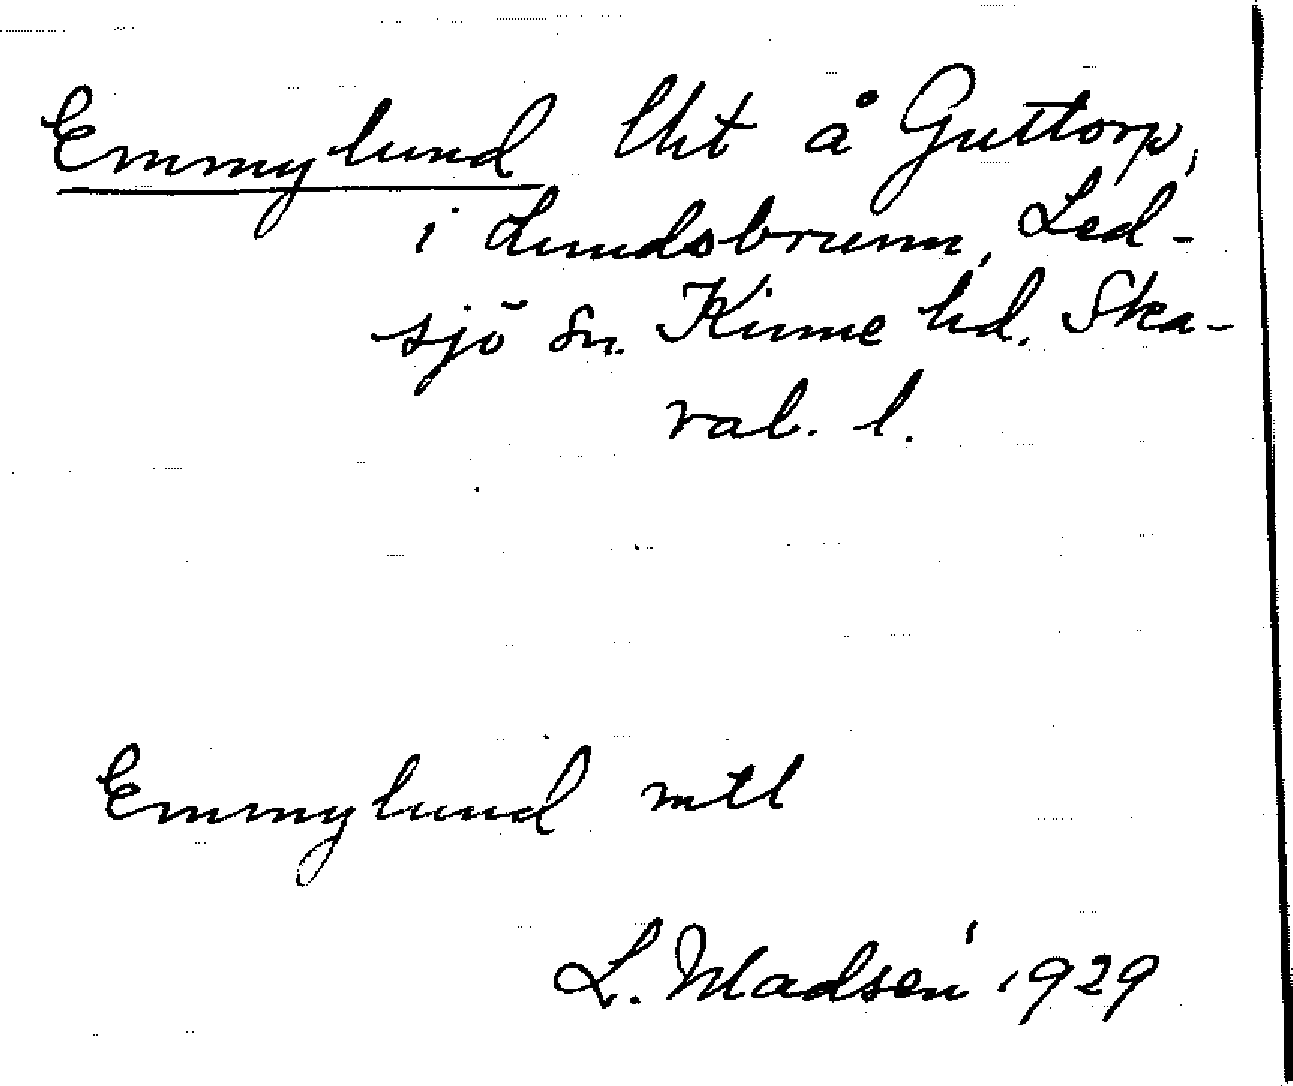 Emmylund lht å Guttorp,
i Lundsbrunn, Led-
sjö sn. Kinne hd. Ska-
rab. l.
Emmylund mtl
L. Madsén 1929